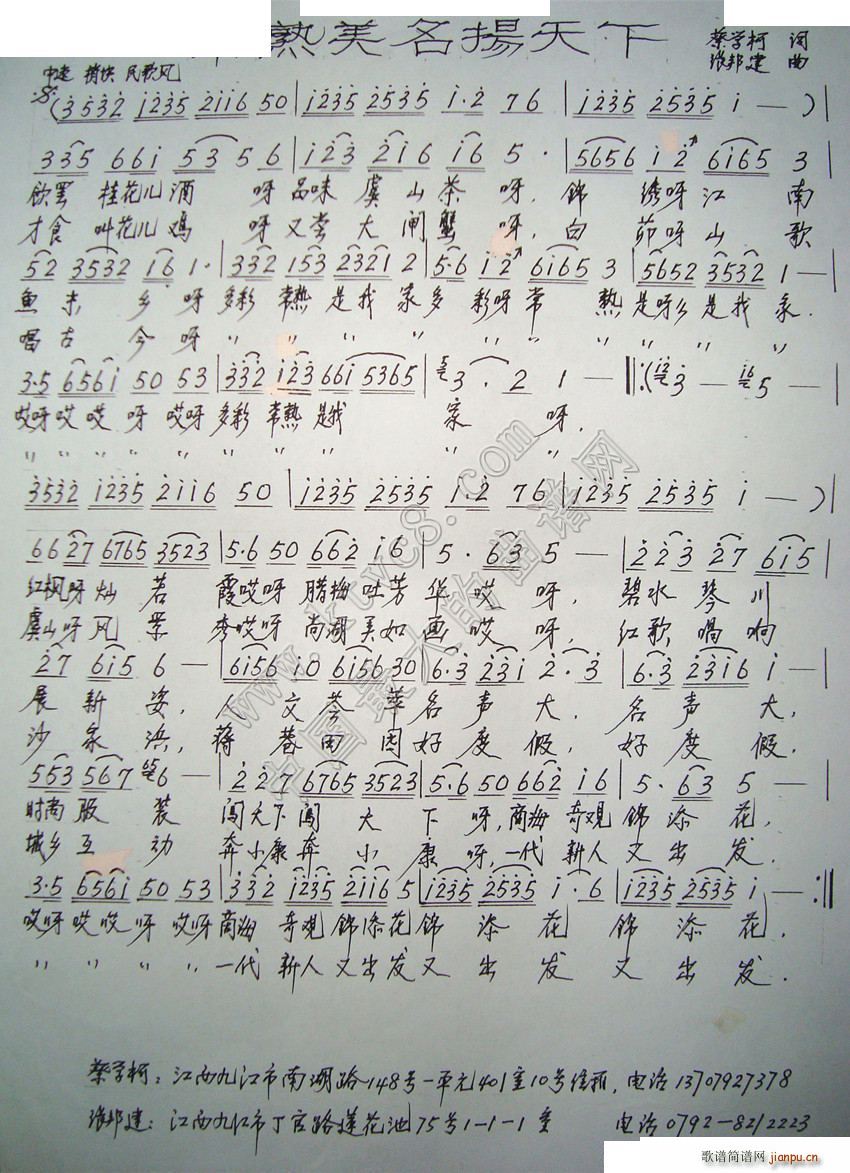 熱美名揚天下
蔡学柯 词
张邦建 曲
中速 稍快 民歌风
(3532 1235 2116 50 | 1235 2535 1·2 76 | 1235 2535 1 — )|
335 661 53 5 6 | 123 216 16 5 · | 5656 12 6165 3
饮罢 桂花儿酒 呀 品味 虞山茶呀, 錦 绣呀江 南
才食 叫花儿鸡 呀 又尝 大闸蟹呀, 白 茆呀山 歌
52 3532 16 1· | 332 153 2321 2 | 5·6 12 6165 3 | 5652 3532 1 — |
鱼米 乡呀 多彩 常熟 是我 家 多彩呀 常 熟 是呀么是我 家.
唱古 今呀 〃 〃 〃 〃 〃 〃 〃 〃 〃
3·5 6561 50 53 | 332 123 661 5365 | 3· 2 1 — :(3 — 5 — |
哎呀 哎哎呀 哎呀 多彩 常熟 是我 家 呀.
〃 〃 〃 〃 〃 〃 〃 〃 〃
3532 1235 2116 50 | 1235 2535 1·2 76 | 1235 2535 1 — )|
6627 6765 3523 | 5·6 50 662 16 | 5 · 63 5 — | 223 27 615
红枫呀灿 若 霞哎呀 腊梅 吐芳 华 哎 呀, 碧水 琴 川
虞山呀风 景 秀哎呀 尚湖 美如 画 哎 呀, 红歌 唱 啊
27 615 6 — | 6156 10 6156 30 | 6·3 231 2·3 | 6·3 2316 1 — |
展 新 姿, 人 文 荟 萃 名 声 大, 名 声 大,
沙 家 浜, 蒋 巷 田 园 好 度 假, 好 度 假.
553 567 6 — | 227 6765 3523 | 5·6 50 662 16 | 5· 63 5 — |
时尚 服 装 闯天下 闯 天 下 呀, 商海 奇观 錦 添 花,
城乡 互 动 奔小康 奔 小 康 呀, 一代 新人 又 出 发.
3·5 6561 50 53 | 332 1235 2116 5 | 1235 2535 1· 6 | 1235 2535 1 — :||
哎呀 哎哎呀 哎呀 商海 奇观 錦添花 錦 添 花 錦 添 花,
〃 〃 〃 〃 一代 新人 又出发 又 出 发 又 出 发.
www.ktvc8.com
中国最大的曲谱网
蔡学柯: 江西九江市南湖路148号一单元401室10号信箱, 电话 13707927378
张邦建: 江西九江市丁官路莲花池75号1-1-1室 电话 0792-8212223
歌谱简谱网
jianpu.cn